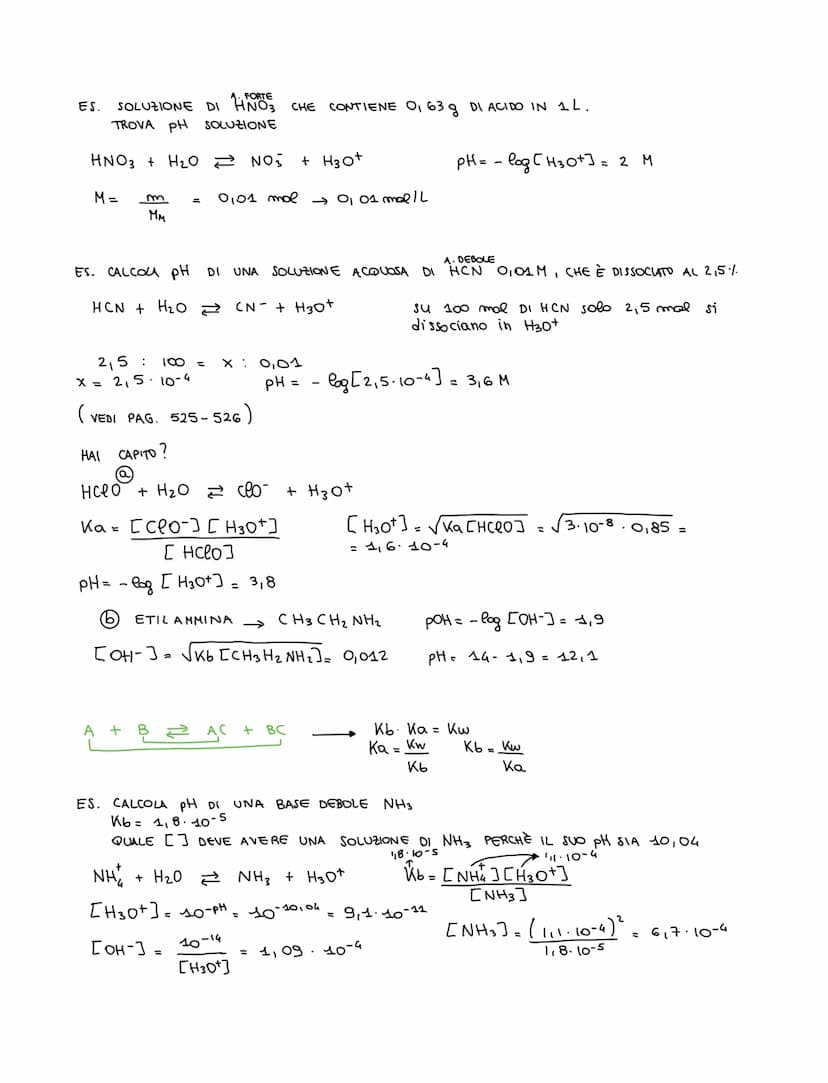 A. FORTE
ES. SOLUZIONE DI HNO₃ CHE CONTIENE 0,63g DI ACIDO IN 1L.
TROVA pH SOLUZIONE
HNO₃ + H₂O ⇄ NO₃⁻ + H₃O⁺ pH = - log[H₃O⁺] = 2 M
M = m/MM = 0,01 mol → 0,01 mol/L
A. DEBOLE
ES. CALCOLA pH DI UNA SOLUZIONE ACQUOSA DI HCN 0,01M, CHE È DISSOCIATO AL 2,5%
HCN + H₂O ⇄ CN⁻ + H₃O⁺ su 100 mol DI HCN solo 2,5 mol si
dissociano in H₃O⁺
2,5 : 100 = x : 0,01
x = 2,5·10⁻⁴ pH = - log[2,5·10⁻⁴] = 3,6 M
(VEDI PAG. 525-526)
HAI CAPITO?
ⓐ
HClO + H₂O ⇄ ClO⁻ + H₃O⁺
Ka = [ClO⁻][H₃O⁺]/[HClO] [H₃O⁺] = √Ka[HClO] = √3·10⁻⁸·0,85 =
= 1,6·10⁻⁴
pH = -log [H₃O⁺] = 3,8
ⓑ ETILAMMINA → CH₃CH₂NH₂ pOH = -log [OH-] = 1,9
[OH-] = √Kb[CH₃H₂NH₂] = 0,012 pH = 14 - 1,9 = 12,1
A + B ⇄ AC + BC → Kb·Ka = Kw
Ka = Kw/Kb Kb = Kw/Ka
ES. CALCOLA pH DI UNA BASE DEBOLE NH₃
Kb = 1,8·10⁻⁵
QUALE [] DEVE AVERE UNA SOLUZIONE DI NH₃ PERCHÈ IL SUO pH SIA 10,04
1,8·10⁻⁵ 1,1·10⁻⁴
NH₄⁺ + H₂O ⇄ NH₃ + H₃O⁺ Kb = [NH₄⁺][H₃O⁺]/[NH₃]
[H₃O⁺] = 10⁻ᵖᴴ = 10⁻¹⁰,⁰⁴ = 9,1·10⁻¹¹
[OH-] = 10⁻¹⁴/[H₃O⁺] = 1,09·10⁻⁴ [NH₃] = (1,1·10⁻⁴)²/1,8·10⁻⁵ = 6,7·10⁻⁴